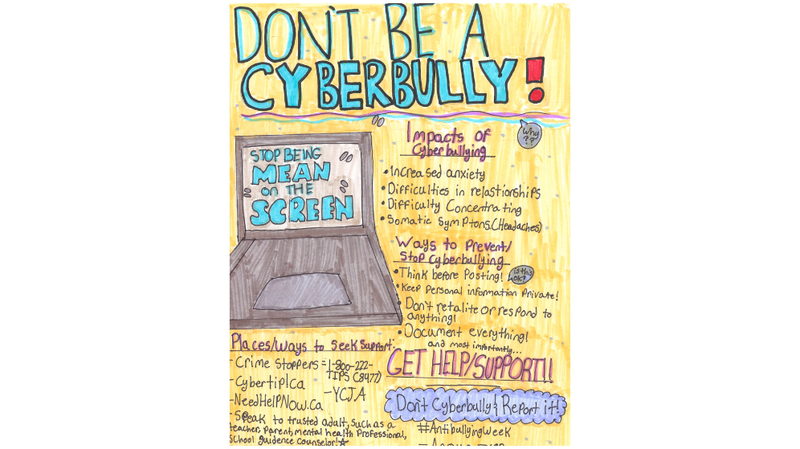 DON'T BE A
CYBERBULLY!
Why
??
STOP BEING
MEAN
ON THE
SCREEN
Impacts of
Cyberbullying
•Increased anxiety
•Difficulties in relastionships
•Difficulty Concentrating
•Somatic Symptons.(Headaches)
Ways to Prevent/
Stop Cyberbullying
•Think before Posting!
Is this
ok?
•Keep Personal information Private!
•Don't retalite or respond to
anything!
•Document everything!
and most importantly...
GET HELP/SUPPORT!!
Places/Ways to Seek Support:
-Crime Stoppers=1-800-222-
TIPS (8477)
-Cybertip.ca
-YCJA
-NeedHelpNow.ca
-Speak to trusted adult, such as a
teacher, Parent, mental health Professional,
School guidence counselor!
Don't Cyberbully & Report it!
#AntibullyingWeek